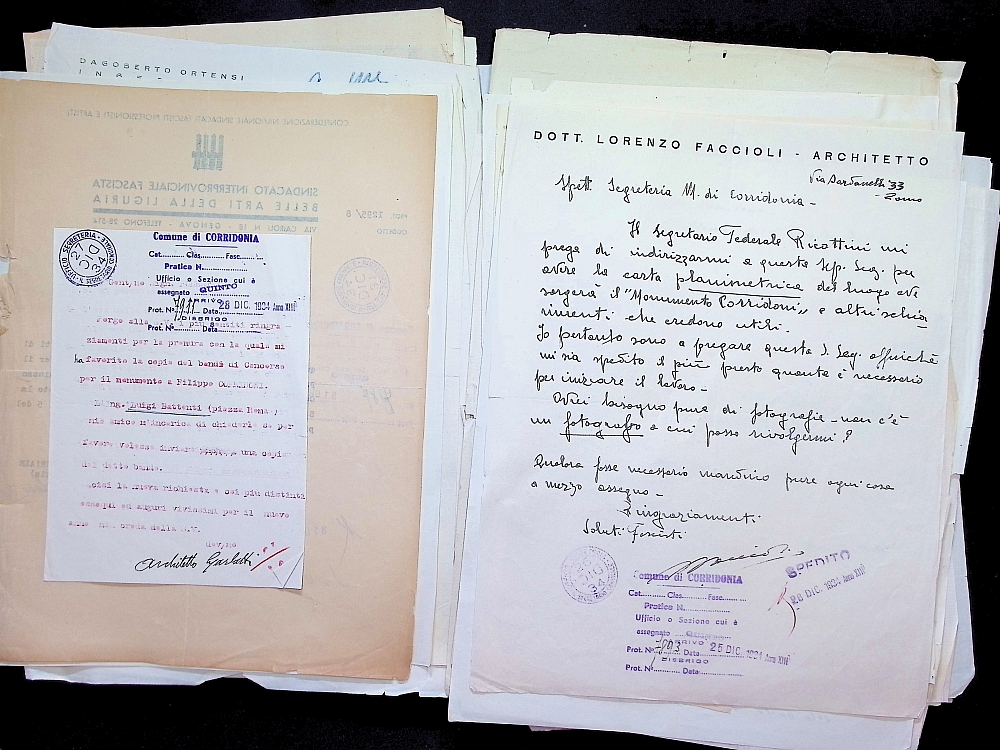 DAGOBERTO ORTENSI
CONFEDERAZIONE NAZIONALE SINDACATI FASCISTI PROFESSIONISTI E ARTISTI
SINDACATO INTERPROVINCIALE FASCISTA
BELLE ARTI DELLA LIGURIA
VIA CAIROLI N 18 - GENOVA - TELEFONO 28-514
PROT. 1295/ B
OGGETTO
Comune di CORRIDONIA
Cat. Clas. Fasc.
Pratica N.
Ufficio o Sezione cui è
assegnato QUINTO
ARRIVO
Prot. N° Data 28 DIC. 1934 Anno XIII°
DISBRIGO
Prot. N° Data
27 DIC 34
Porgo alla i più sentiti ringra-
ziamenti per la premura con la quale mi
ha favorito la copia del bando di Concorso
per il monumento a Filippo CORRIDONI.
L'Ing. Luigi Battenti (piazza Roma )
mio amico m'incarica di chiederle se per
favore volesse inviare una copia
del detto bando.
la nuova richiesta e coi più distinti
ossequi ed auguri vivissimi per il nuovo
anno mi creda della S.V.
dev.mo
Architetto Garlatti
DOTT. LORENZO FACCIOLI - ARCHITETTO
Via Dardanelli 33
Roma
Spett. Segreteria M. di Corridonia -
Il Segretario Federale Ricottini mi
prega di indirizzarmi a questa Spp. Seg. per
avere la carta planimetrica del luogo ove
sorgerà il "Monumento Corridoni" e altri schia
rimenti che credono utili.
Io pertanto sono a pregare questa S. Seg. affinchè
mi sia spedito il più presto quanto è necessario
per iniziare il lavoro -
Avrei bisogno pure di fotografie - non c'è
un fotografo a cui posso rivolgermi?
Qualora fosse necessario mandino pure ogni cosa
a mezzo assegno -
Ringraziamenti
Saluti Fascisti
Comune di CORRIDONIA
Cat. Clas. Fasc.
Pratica N.
Ufficio o Sezione cui è
assegnato
ARRIVO
Prot. N° 7893 Data 25 DIC. 1934 Anno XIII°
DISBRIGO
Prot. N° Data
SPEDITO
28 DIC. 1934 Anno XIII°